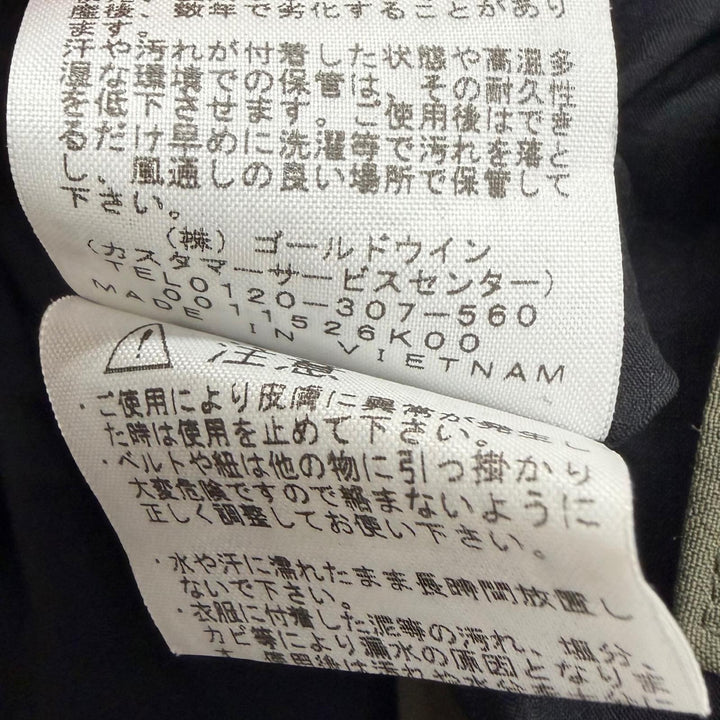 後、数年で劣化することがあり
ます。
汗や汚れが付着した状態や高温多
湿な環境での保管は、その耐久性
を低下させます。ご使用後はできる
だけ早めに洗濯等で汚れを落とし
、風通しの良い場所で保管して
下さい。
(株) ゴールドウイン
(カスタマーサービスセンター)
TEL0120-307-560
0011526K00
MADE IN VIETNAM
注意
・ご使用により皮膚に異常が発生し
た時は使用を止めて下さい。
・ベルトや紐は他の物に引っ掛かり
大変危険ですので絡まないように
正しく調整してお使い下さい。
・水や汗に濡れたまま長時間放置し
ないで下さい。
・衣服に付着した泥等の汚れ、塩分、
カビ等により漏水の原因となり